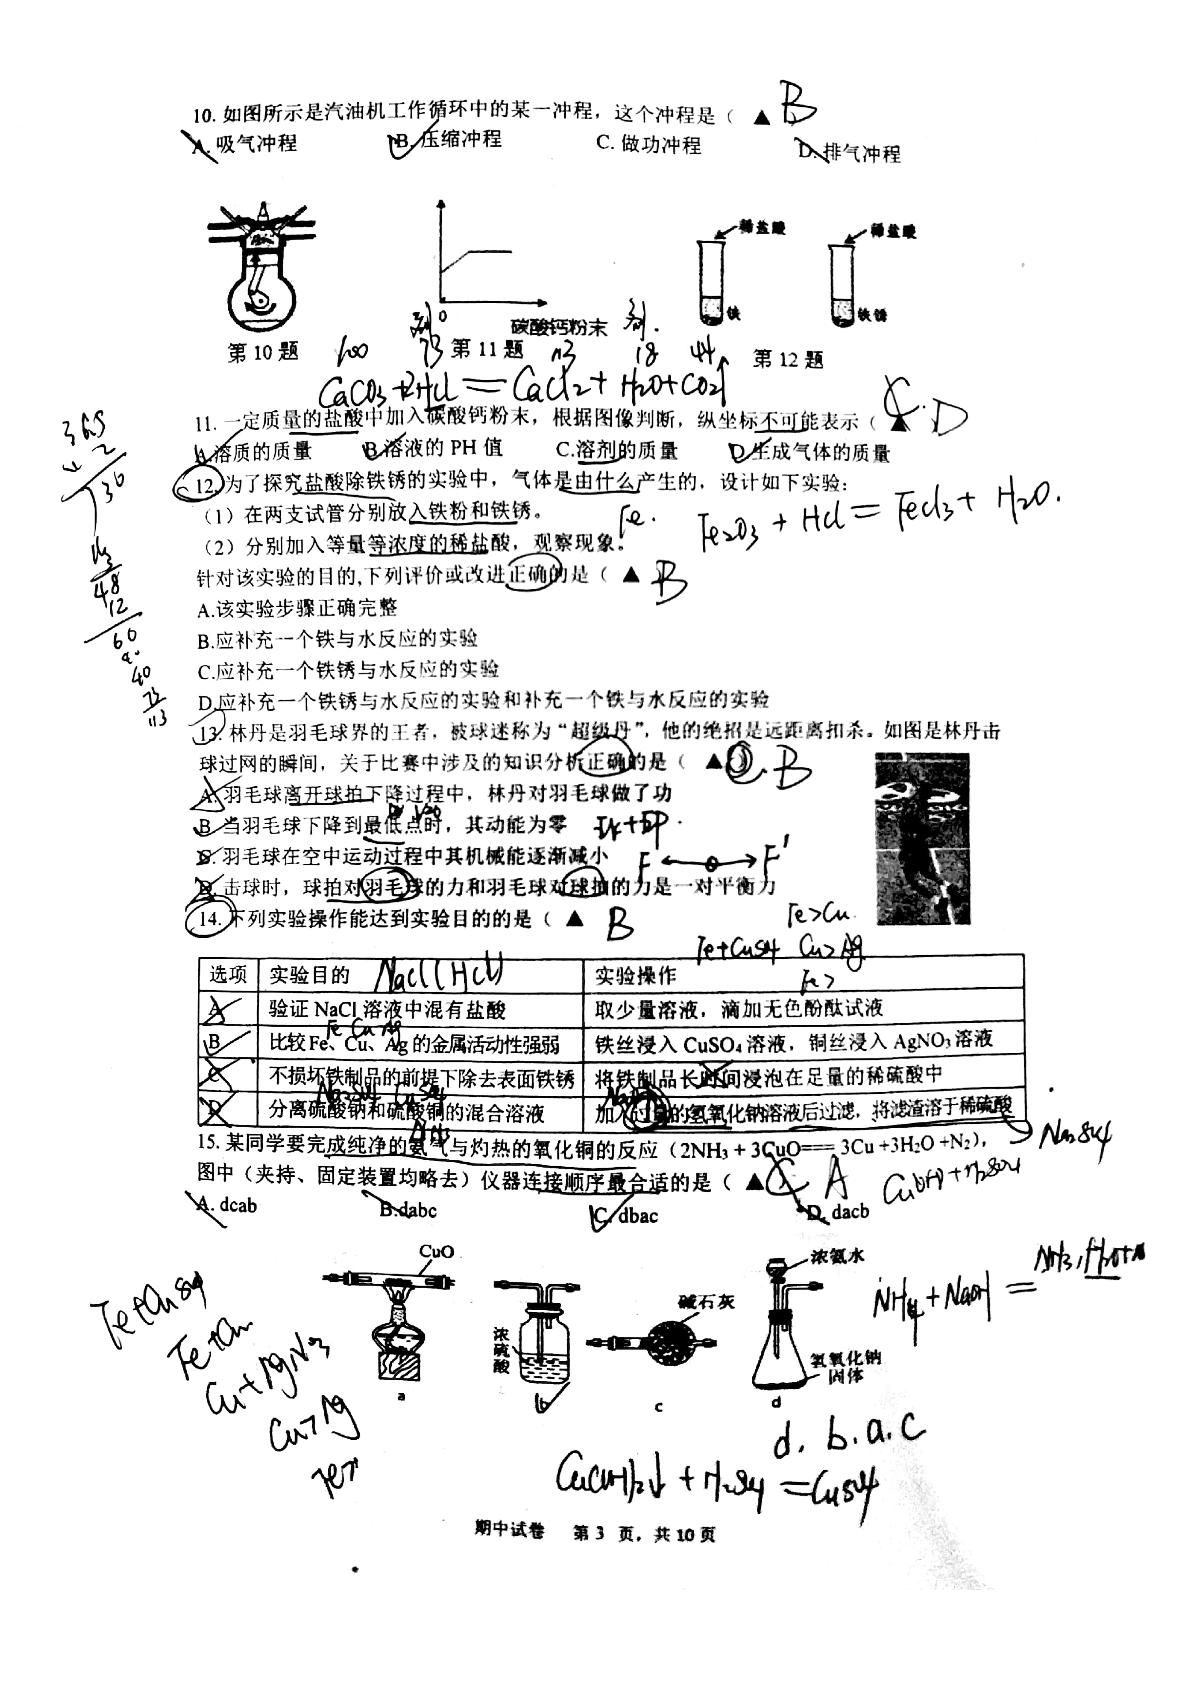 10. 如图所示是汽油机工作循环中的某一冲程，这个冲程是（ ▲ B
A. 吸气冲程 B. 压缩冲程 C. 做功冲程 D. 排气冲程
稀盐酸 稀盐酸
铁 铁锈
0 碳酸钙粉末
第10题 第11题 第12题
100 73 113 18 44
CaCO3+2HCl=CaCl2+H2O+CO2↑
11. 一定质量的盐酸中加入碳酸钙粉末，根据图像判断，纵坐标不可能表示（ ▲ C. D
A.溶质的质量 B.溶液的 PH 值 C.溶剂的质量 D.生成气体的质量
12.为了探究盐酸除铁锈的实验中，气体是由什么产生的，设计如下实验：
（1）在两支试管分别放入铁粉和铁锈。
Fe. Fe2O3 + HCl = FeCl3 + H2O.
（2）分别加入等量等浓度的稀盐酸，观察现象。
针对该实验的目的,下列评价或改进正确的是（ ▲ B
A.该实验步骤正确完整
B.应补充一个铁与水反应的实验
C.应补充一个铁锈与水反应的实验
D.应补充一个铁锈与水反应的实验和补充一个铁与水反应的实验
48
12
60
40
73
113
13. 林丹是羽毛球界的王者，被球迷称为“超级丹”，他的绝招是远距离扣杀。如图是林丹击
球过网的瞬间，关于比赛中涉及的知识分析正确的是（ ▲ B
A. 羽毛球离开球拍下降过程中，林丹对羽毛球做了功
B. 当羽毛球下降到最低点时，其动能为零
C. 羽毛球在空中运动过程中其机械能逐渐减小 F F'
D. 击球时，球拍对羽毛球的力和羽毛球对球拍的力是一对平衡力
14. 下列实验操作能达到实验目的的是（ ▲ B
Fe>Cu
Fe+CuSO4 Cu>Ag
Fe>
选项 实验目的 NaCl(HCl) 实验操作
A 验证 NaCl 溶液中混有盐酸 取少量溶液，滴加无色酚酞试液
B 比较 Fe、Cu、Ag 的金属活动性强弱 铁丝浸入 CuSO4 溶液，铜丝浸入 AgNO3 溶液
C 不损坏铁制品的前提下除去表面铁锈 将铁制品长时间浸泡在足量的稀硫酸中
D 分离硫酸钠和硫酸铜的混合溶液 加入过量的氢氧化钠溶液后过滤，将滤渣溶于稀硫酸
Na2SO4
15. 某同学要完成纯净的氨气与灼热的氧化铜的反应（2NH3 + 3CuO=== 3Cu +3H2O +N2），
图中（夹持、固定装置均略去）仪器连接顺序最合适的是（ ▲ C A
A. dcab B.dabc C. dbac D. dacb
CuO
浓硫酸
碱石灰
浓氨水
氢氧化钠
固体
a b c d
Fe+CuSO4
Fe+Cu
Cu+AgNO3
Cu>Ag
d. b.a.c
Cu(OH)2↓+H2SO4=CuSO4
期中试卷 第 3 页，共 10 页